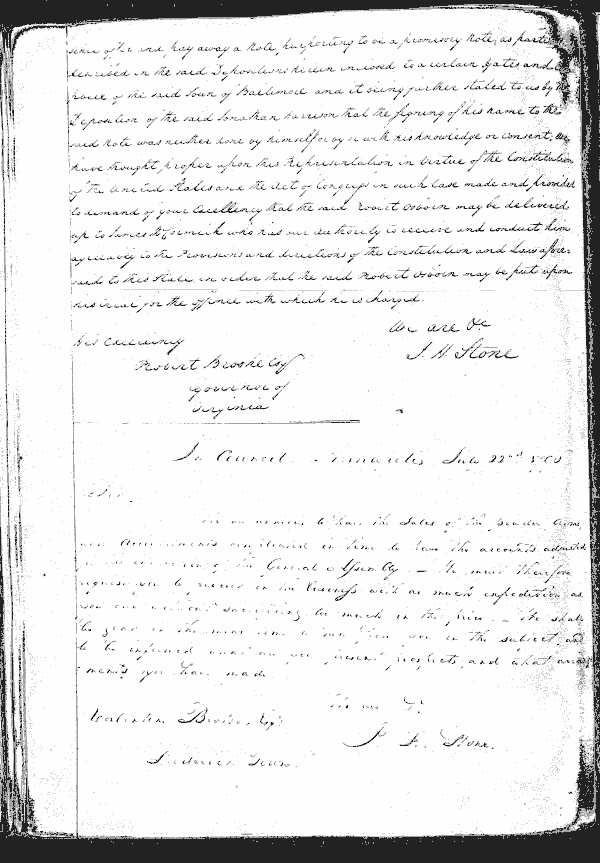 and pay away a Note, purporting to be a promisory Note, as
described in the said Depositions herein inclosed to a certain Yates and
of the said Town of Baltimore and it being further stated to us by the
Deposition of the said Jonathan Harrison that the signing of his name to the
said Note was neither done by himself or by or with his knowledge or consent, We
have thought proper upon this Representation in virtue of the Constitution
of the United States and the Act of Congress in such Case made and provided
to demand of your Excellency that the said Robert Osborn may be delivered
up to James McCormick who has our authority to receive and conduct him
agreeably to the Provisions and directions of the Constitution and Law afore-
said to this State, in order that the said Robert Osborn may be put upon
his trial for the offence with which he is charged.
We are &c
His Excellency
J. H. Stone
Robert Brooke Esqr
Governor of
Virginia
In Council Annapolis July 22nd
Sir,
to have the Sales of the
in time to have the accounts adjusted
of the General Assembly. — We must therefore
request you to proceed in the business with as much expedition as
you can without sacrificing too much in the price. — We shall
be glad in the mean time from you on the subject, and
to be informed what are your present prospects, and what arrange
ments you have made
We are &c
Valentine Brother Esqr
J. H. Stone.
Frederick Town.